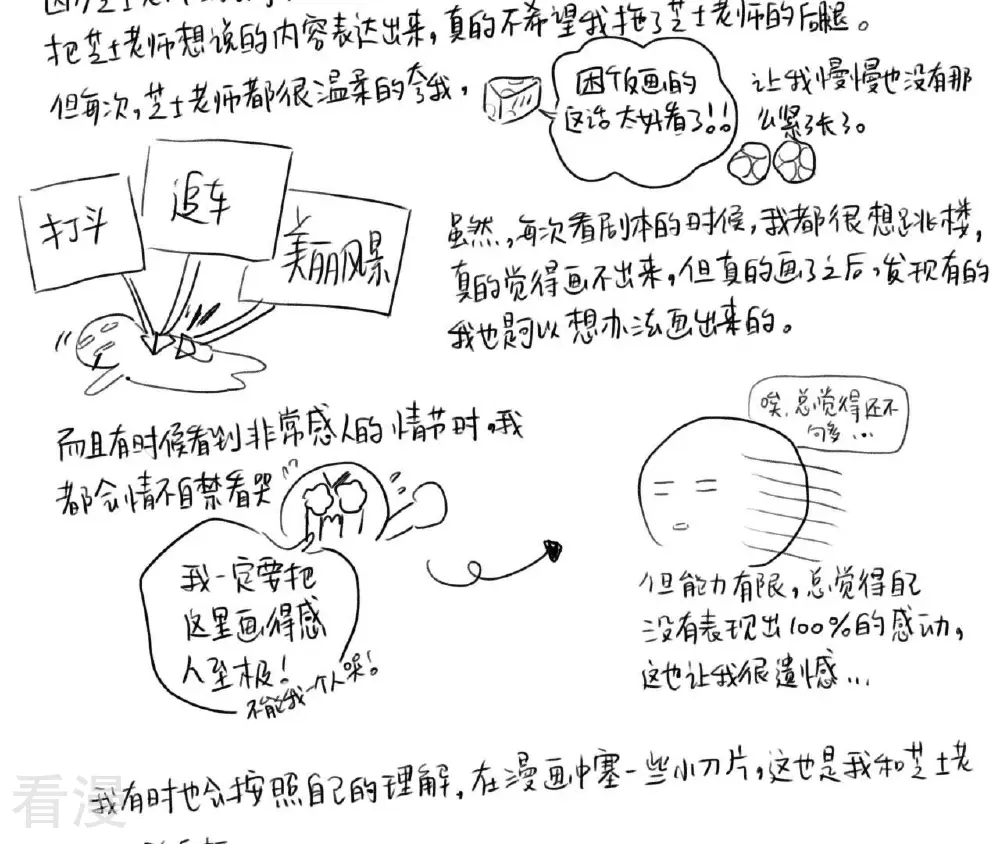 把芝士老师想说的内容表达出来，真的不希望我拖了芝士老师的后腿。
但每次，芝士老师都很温柔的夸我，
困饭画的
这话太好看了!!
让我慢慢也没有那
么紧张了。
打斗
追车
美丽风景
虽然，每次看剧本的时候，我都很想跳楼，
真的觉得画不出来，但真的画了之后，发现有的
我也是可以想办法画出来的。
而且有时候看到非常感人的情节时，我
都会情不自禁看哭
我一定要把
这里画得感
人至极！
不能我一个人哭！
唉，总觉得还不
够…
但能力有限，总觉得自己
没有表现出100%的感动，
这也让我很遗憾…
我有时也会按照自己的理解，在漫画中塞一些小刀片，这也是我和芝士老
看漫